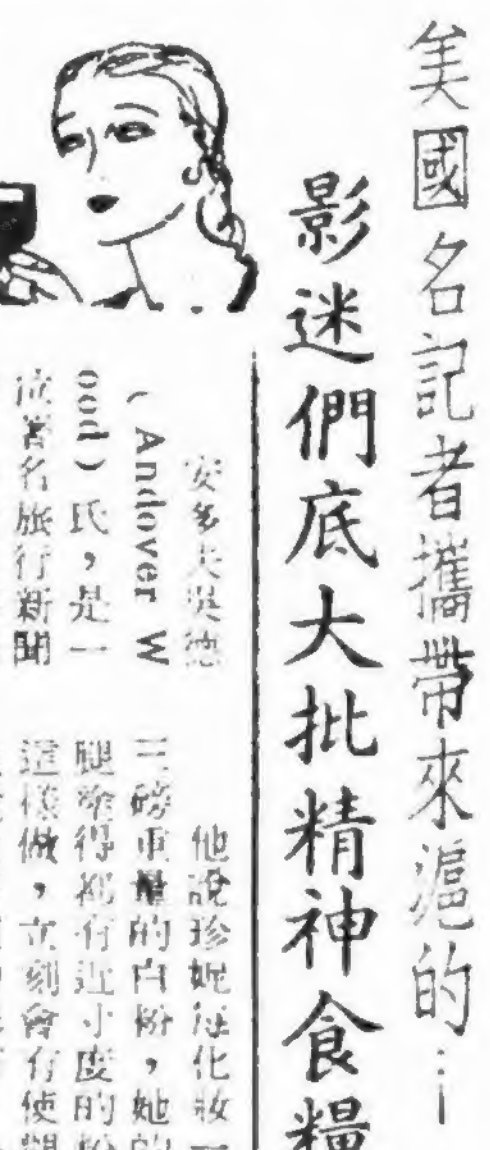 美國名記者攜帶來滬的…
影迷們底大批精神食糧
安多夫吳德
( Andover W
ood) 氏，是一
位著名旅行新聞
他說珍妮每化妝一
三磅重量的白粉，她的
腿塗得都有近寸度的粉
這樣做，立刻會有使觀